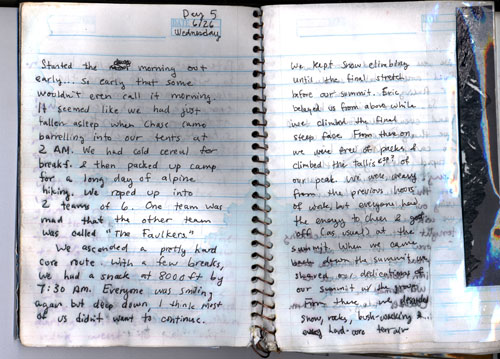 Day 5
DATE 6/26
Wednesday
Started the morning out
early.... So early that some
wouldn't even call it morning.
It seemed like we had just
fallen asleep when Chase came
barrelling into our tents at
2 AM. We had cold cereal for
breakf. & then packed up camp
for a long day of alpine
hiking. We roped up into
2 teams of 6. One team was
mad that the other team
was called "The Faulkers."
We ascended a pretty hard
core route. With a few breaks,
we had a snack at 8000ft by
7:30 AM. Everyone was smiling
again but deep down, I think most
of us didn't want to continue.
We kept snow climbing
until the final stretch
before our summit. Eric
belayed us from above while
we climbed the final
steep face. From there on,
we were free of packs &
climbed the tallest of
our peak. We were weary
from the previous hours
of work, but everyone had
the energy to cheer &
off (as usual) at the
summit. When we came
down the summit, we
our dedications of
our summit w/ the group.
From there, we
snow, rocks, bush-wacking &
hard-core terrain